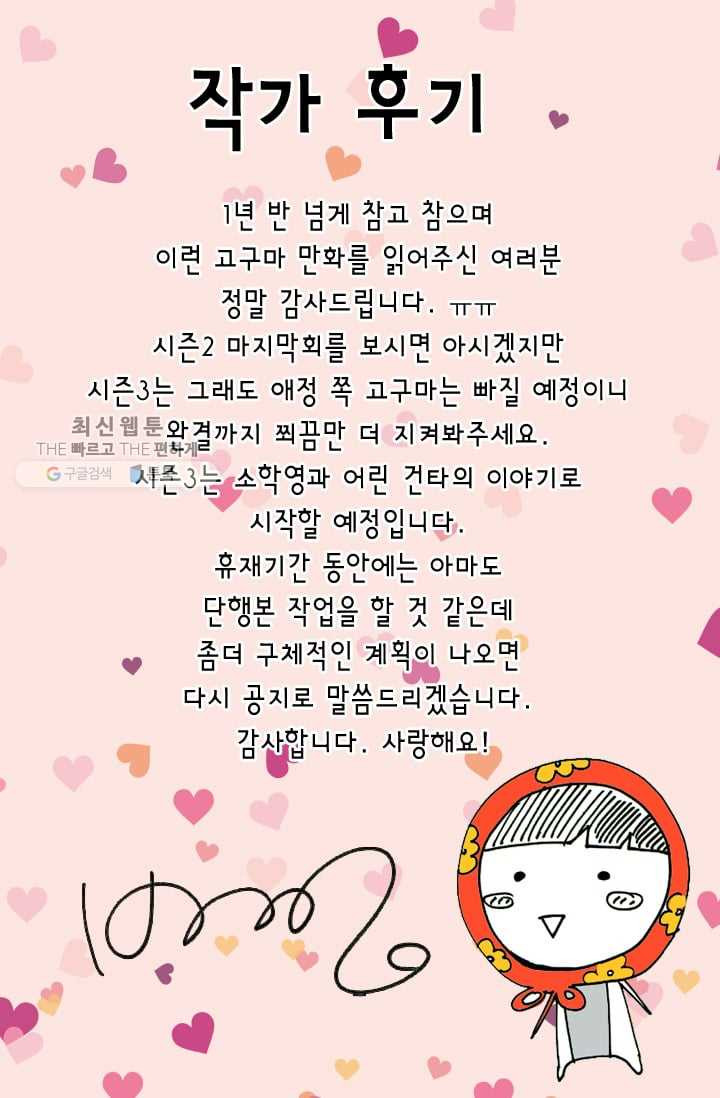 작가 후기
1년 반 넘게 참고 참으며
이런 고구마 만화를 읽어주신 여러분
정말 감사드립니다. ㅠㅠ
시즌2 마지막회를 보시면 아시겠지만
시즌3는 그래도 애정 쪽 고구마는 빠질 예정이니
최신웹툰
완결까지 찌끔만 더 지켜봐주세요.
THE 빠르고 THE 편하게
G 구글검색
시즌3는 소학영과 어린 건타의 이야기로
시작할 예정입니다.
휴재기간 동안에는 아마도
단행본 작업을 할 것 같은데
좀더 구체적인 계획이 나오면
다시 공지로 말씀드리겠습니다.
감사합니다. 사랑해요!